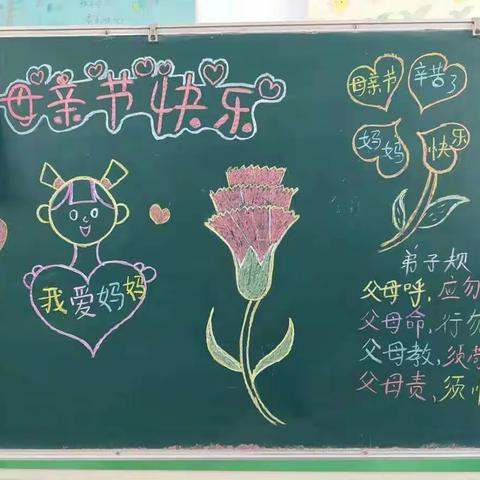 母亲节快乐
母亲节
辛苦了
妈妈
快乐
我爱妈妈
弟子规
父母呼,应勿
父母命,行勿
父母教,须
父母责,须